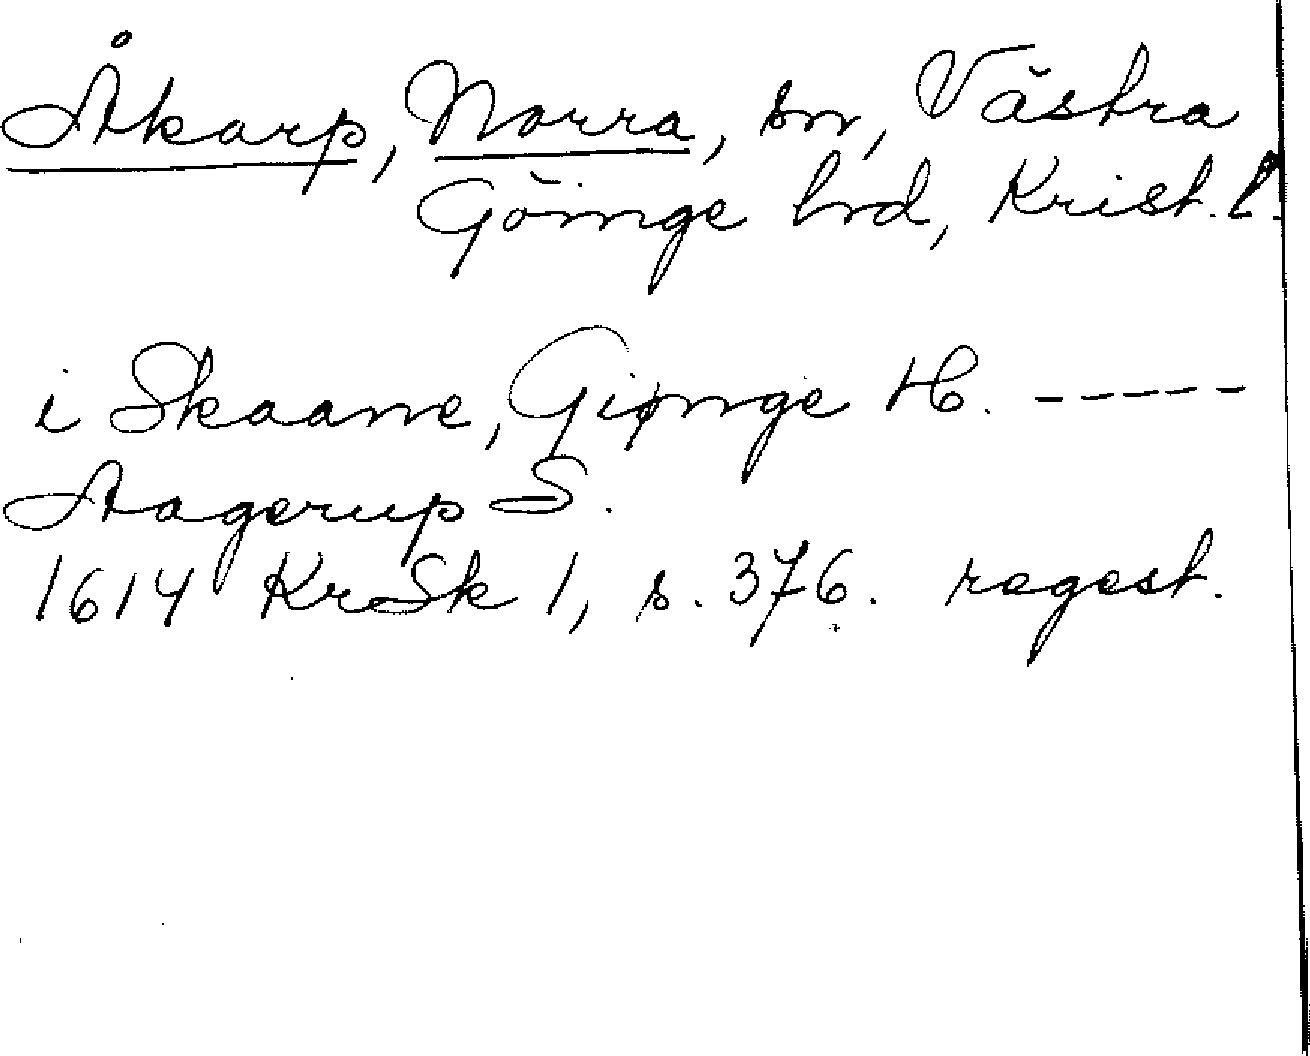 Åkarp, Norra, sn, Västra
Göinge hrd, Krist. l.
i Skaane, Giønge H. -----
Aagerup S.
1614 KrSk 1, s. 376. regest.